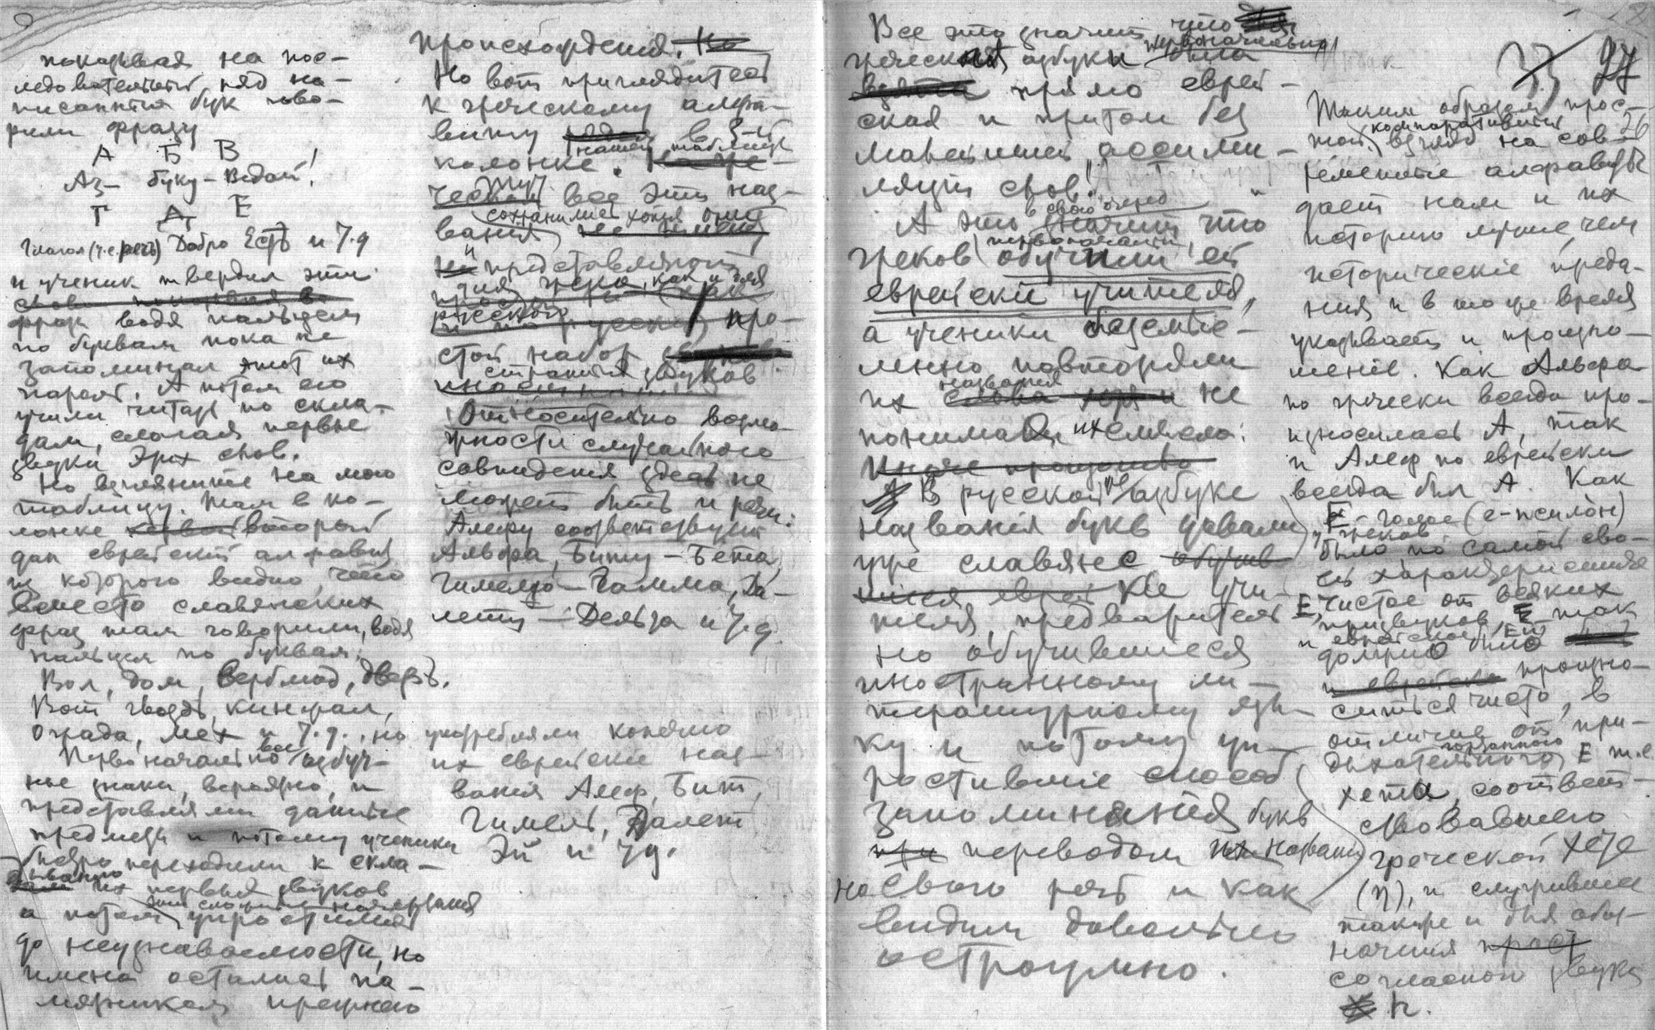 показывая на пос-
ледовательный ряд на-
писанных букв гово-
рили фразу
А Б В
Аз – буку – Ведай!
Г Д Е
Глагол (т.е. речь) Добро Есть и т.д
и ученик твердил эти
слова показывая в
фраз водя пальцем
по буквам пока не
запоминал этот их
пароль. А потом его
учили читать по скла-
дам, слагая первые
звуки этих слов.
Но взгляните на мою
таблицу. Там в ко-
лонке второй
дан еврейский алфавит
из которого видно, что
вместо славянских
фраз там говорили, водя
пальцем по буквам:
Вол, дом, верблюд, дверь.
Вот гвоздь, кинжал,
ограда, мех и т.д.
Первоначально все азбуч-
ные знаки, вероятно, и
представляли данные
предметы и потому ученики
быстро переходили к скла-
дыванию их первых звуков
а потом знаки упростились
до неузнаваемости, но
имена остались па-
мятником прежнего
происхождения. Но
Но вот приглядитесь
к греческому алфа-
виту в 3-й
колонке нашей таблицы.
Тут все эти наз-
вания сохранились хотя они
и представляют
для грека, как и для
русского про-
стой набор
странных звуков
Относительно возмо-
жности случайного
совпадения здесь не
может быть и речи:
Алефу соответствует
Альфа, Биту – Бета,
Гимелю – Гамма, Да-
лету – Дельта и т.д.
но употребляли конечно
их еврейские наз-
вания Алеф, Бит,
Гимель, Далет
Эй и т.д.
Все это значит, что
греческая азбука первоначально была
взята прямо еврей-
ская и притом без
малейшей ассими-
ляции слов!
А это в свою очередь значит что
греков первоначально обучили ей
еврейские учителя,
а ученики бессмыс-
ленно повторяли
их названия не
понимая их смысла.
Иначе произошло
В русской же азбуке
названия букв давали
уже славянские учи-
теля, предваритель
но обучившиеся
иностранному ли-
тературному язы-
ку и потому уп-
ростившие способ
запоминания букв
переводом их названий
на свою речь и как
видим довольно
остроумно.
33 27
26
Таким образом прос-
той компаративный взгляд на сов-
ременные алфавиты
дает нам и их
историю лучше, чем
исторические преда-
ния и в то же время
указывает и произно-
шение. Как Альфа
по гречески всегда про-
износилась А, так
и Алеф по еврейски
всегда был А. Как
Е – голое (е-псилон)
у греков
было по самой сво-
ей характеристике
чистое от всяких
призвуков Е, так
и еврейское Эй
должно было
произно-
ситься чисто, в
отличие от при-
дыхательного гортанного Е т.е.
хета, соответ-
ствовавшего
греческой хете
(η), и служившее
также и для обоз-
начения
согласного звука
h.